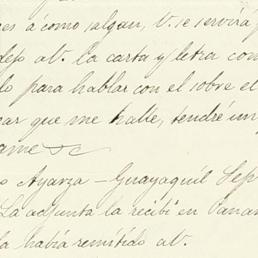 es á como salgan, V. se servirá
dejo at. la carta y letra com
do para hablar con el sobre el
ar que me halle, tendré un
ame &c
o Ayarza – Guayaquil Sep
La adjunta la recibí en Pana
la había remitido at.